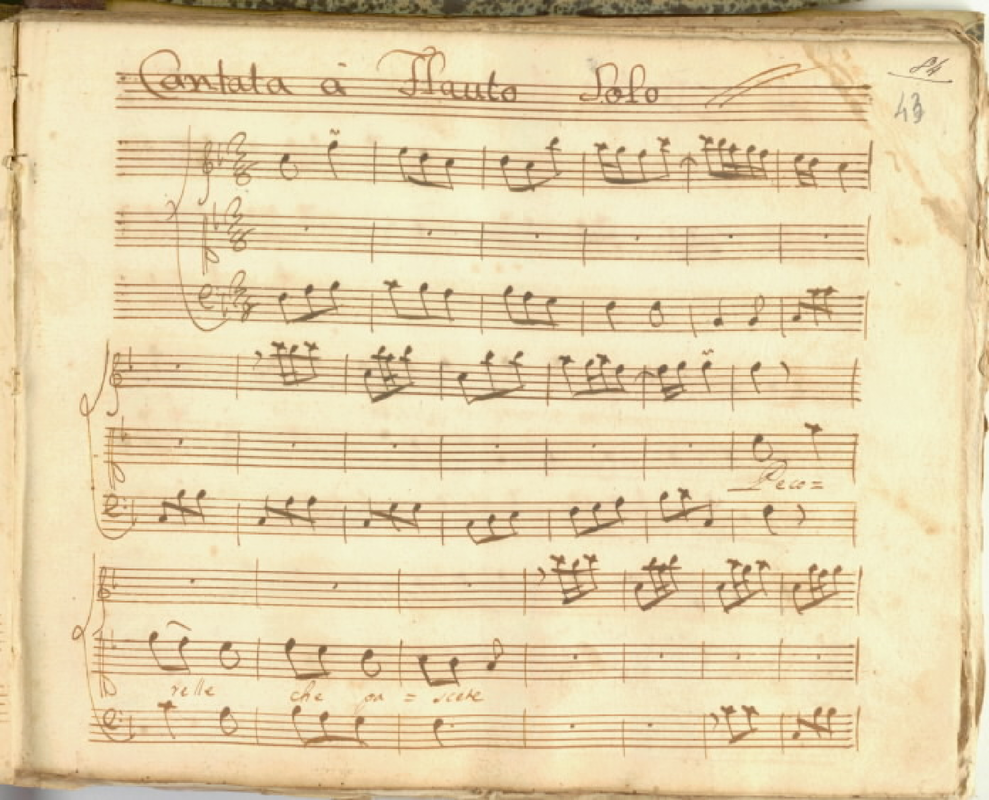 Cantata à Flauto Solo
84
43
Peco=
relle che pa = scete